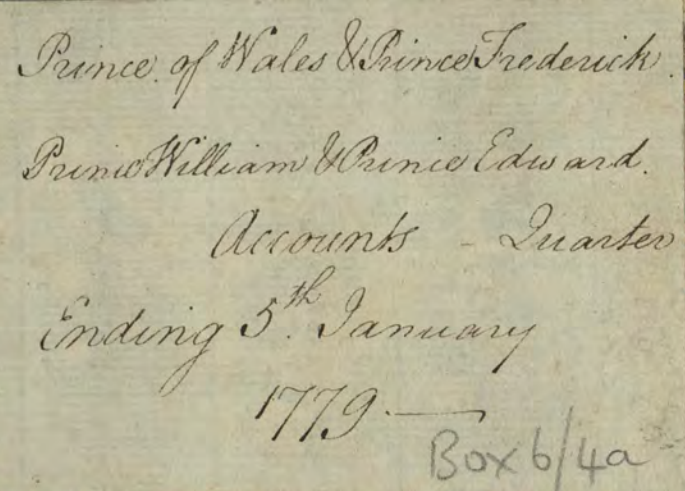 Prince of Wales & Prince Frederick.
Prince William & Prince Edward.
Accounts - Quarter
Ending 5th. January
1779. —
Box 6/4a